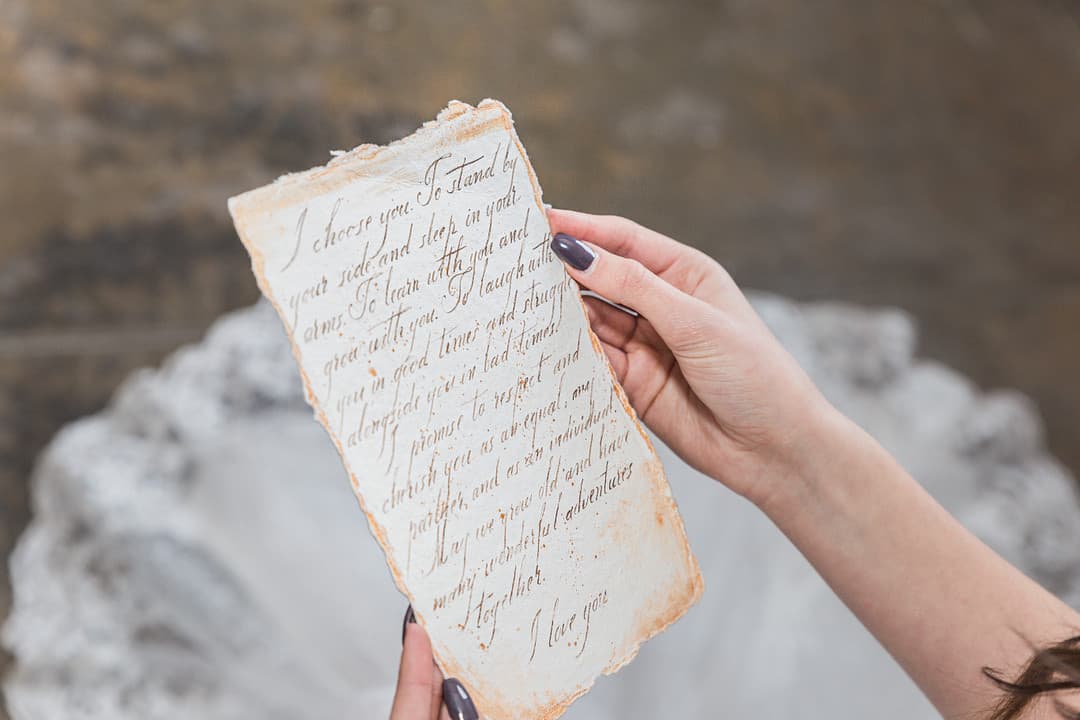 I choose you. To stand by
your side and sleep in your
arms. To learn with you and
grow with you. To laugh with
you in good times and struggle
alongside you in bad times.
I promise to respect and
cherish you as an equal, my
partner, and as an individual.
May we grow old and have
many wonderful adventures
together.
I love you